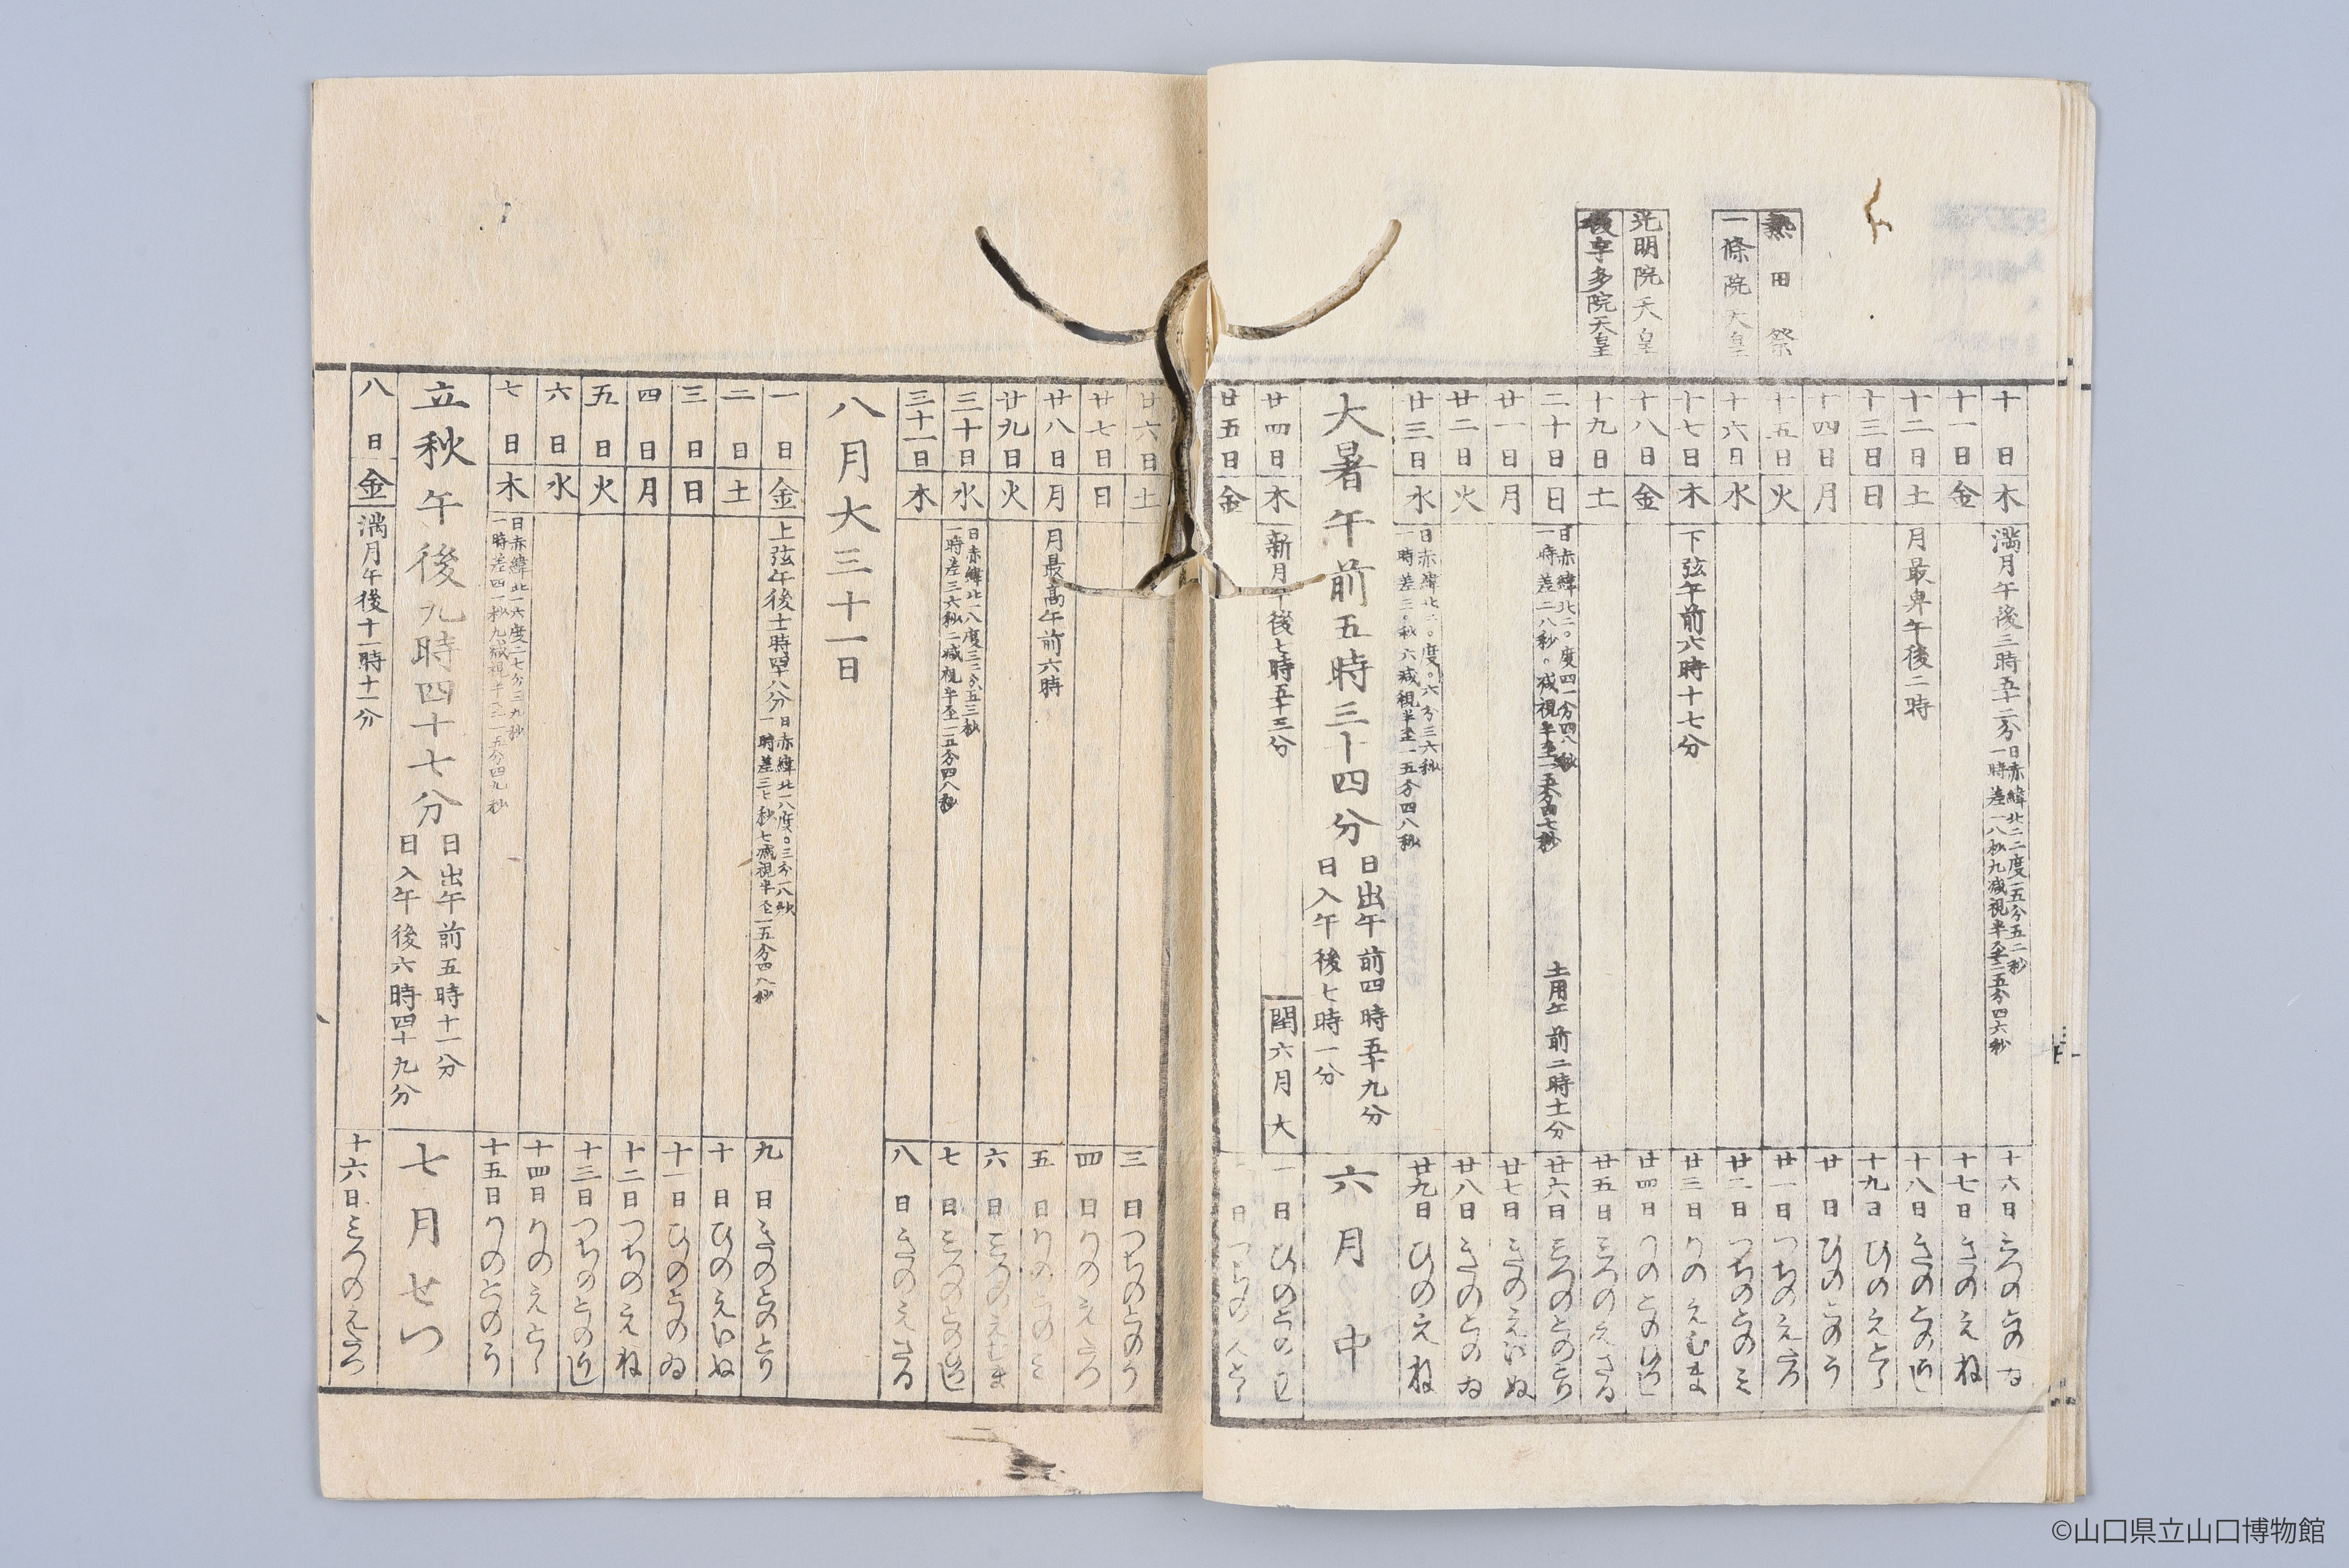 熱田祭
一條院天皇
光明院天皇
後宇多院天皇
十日 木 満月午後三時五十二分 日赤緯北二二度一五分五二秒 一時差一八秒九減視半径一五分四六秒 十六日 みつのとのゐ
十一日 金 十七日 きのえね
十二日 土 月最卑午後二時 十八日 きのとのうし
十三日 日 十九日 ひのえとら
十四日 月 廿日 ひのとのう
十五日 火 廿一日 つちのえたつ
十六日 水 廿二日 つちのとのみ
十七日 木 下弦午前六時十七分 廿三日 かのえむま
十八日 金 廿四日 かのとのひつし
十九日 土 廿五日 みつのえさる
二十日 日 日赤緯北二〇度四一分四八秒 一時差二八秒〇減視半径一五分四七秒 土用午前二時十分 廿六日 みつのとのとり
廿一日 月 廿七日 きのえいぬ
廿二日 火 廿八日 きのとのゐ
廿三日 水 日赤緯北二〇度〇六分三六秒 一時差三〇秒六減視半径一五分四八秒 廿九日 ひのえね
大暑午前五時三十四分 日出午前四時五十九分 日入午後七時一分 六月中
廿四日 木 新月午後七時五十三分 閏六月大 一日 ひのとのうし
廿五日 金 二日 つちのえとら
廿六日 土 三日 つちのとのう
廿七日 日 四日 かのえたつ
廿八日 月 月最高午前六時 五日 かのとのみ
廿九日 火 六日 みつのえむま
三十日 水 日赤緯北一八度三二分五三秒 一時差三六秒二減視半径一五分四八秒 七日 みつのとのひつし
三十一日 木 八日 きのえさる
八月大三十一日
一日 金 上弦午後十一時四十八分 日赤緯北一八度〇三分一八秒 一時差三七秒七減視半径一五分四八秒 九日 きのとのとり
二日 土 十日 ひのえいぬ
三日 日 十一日 ひのとのゐ
四日 月 十二日 つちのえね
五日 火 十三日 つちのとのうし
六日 水 十四日 かのえとら
七日 木 日赤緯北一六度二七分三九秒 一時差四一秒九減視半径一五分四九秒 十五日 かのとのう
立秋午後九時四十七分 日出午前五時十一分 日入午後六時四十九分 七月せつ
八日 金 満月午後十一時十一分 十六日 みつのえたつ
©山口県立山口博物館